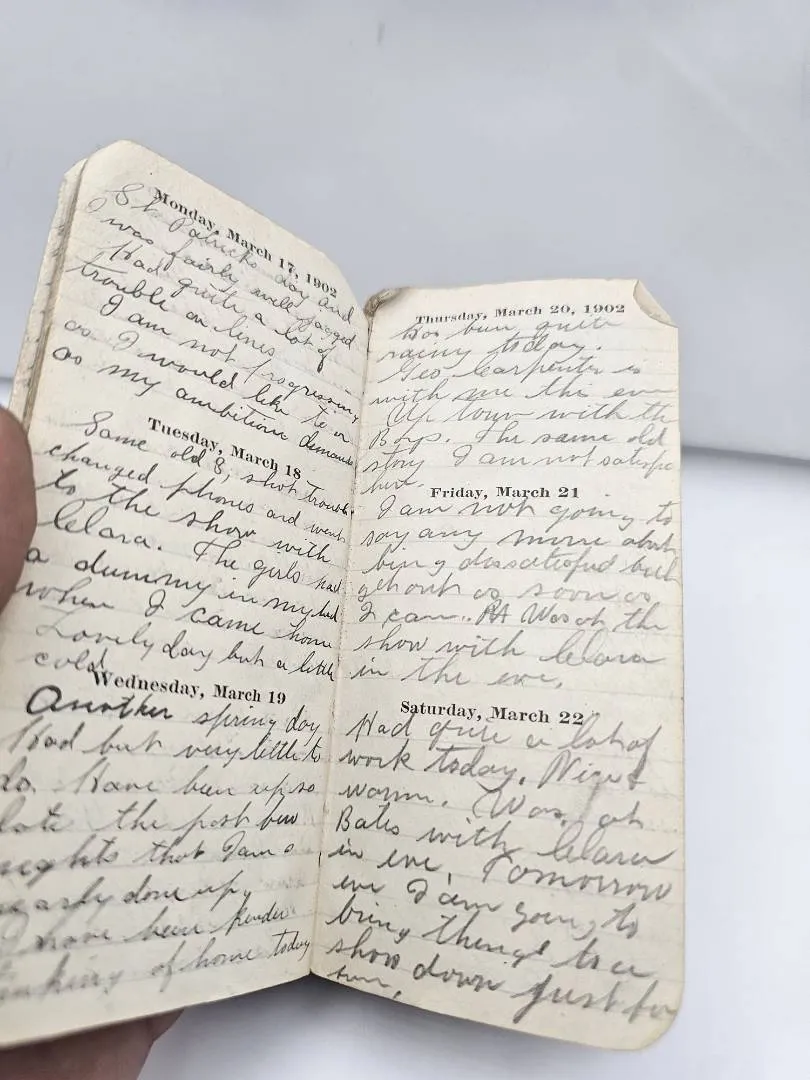 Monday, March 17, 1902
St. Patricks day and
I was fairly well jagged
Had quite a lot of
trouble on lines
I am not progressing
as I would like to or
as my ambition demands
Tuesday, March 18
Same old 8, shot trouble
changed phones and went
to the show with
Clara. The girls had
a dummy in my bed
when I came home
Lovely day but a little
cold.
Wednesday, March 19
Another spring day
Had but very little to
do. Have been up so
late the past few
nights that I am a
nearly done up,
I have been kinder
thinking of home today
Thursday, March 20, 1902
Has been quite
rainy today.
Geo Carpenter is
with me this eve
Up town with the
Boys. The same old
story I am not satisfie
here.
Friday, March 21
I am not going to
say any more about
being dissatisfied but
get out as soon as
I can. Was at the
show with Clara
in the eve.
Saturday, March 22
Had quite a lot of
work today. Nice &
warm. Was at
Bates with Clara
in eve, Tomorrow
eve I am going to
bring things to a
show down just for
fun.